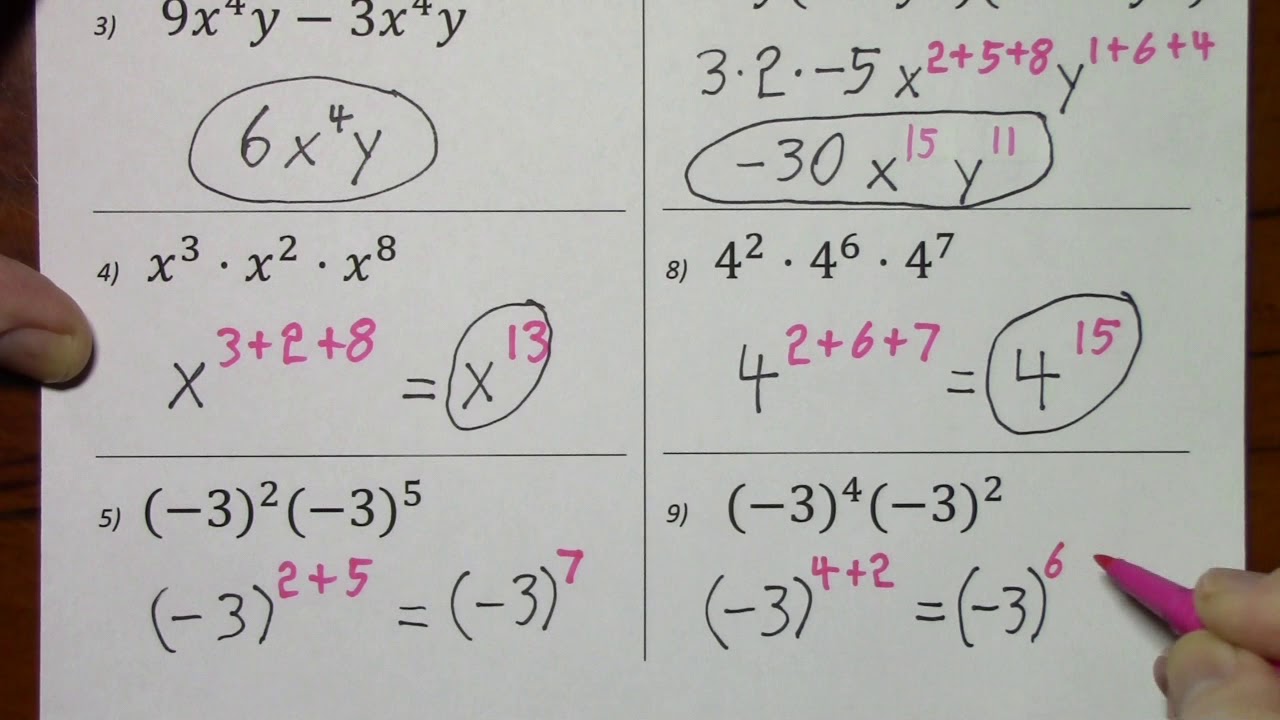 3) 9x⁴y − 3x⁴y
6x⁴y
4) x³ · x² · x⁸
x³⁺²⁺⁸ = x¹³
5) (−3)²(−3)⁵
(−3)²⁺⁵ = (−3)⁷
3·2·−5 x²⁺⁵⁺⁸ y¹⁺⁶⁺⁴
−30 x¹⁵ y¹¹
8) 4² · 4⁶ · 4⁷
4²⁺⁶⁺⁷ = 4¹⁵
9) (−3)⁴(−3)²
(−3)⁴⁺² = (−3)⁶